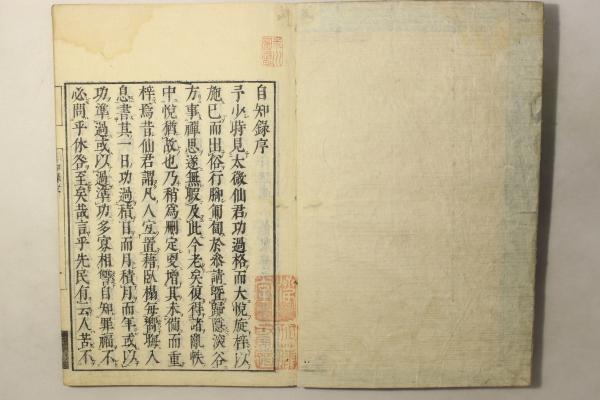 自知錄序
予少時見太微仙君功過格而大悅旋梓以
施已而出俗行脚匍匐於參請暨歸隱深谷
方事禪思遂無暇及此今老矣復得諸亂帙
中悅猶故也乃稍爲刪定更增其未備而重
梓焉昔仙君謂凡人宜置籍臥榻每嚮晦入
息書其一日功過積日而月積月而年或以
功準過或以過準功多寡相讐自知罪福不
必問乎休咎至矣哉言乎先民有云人苦不